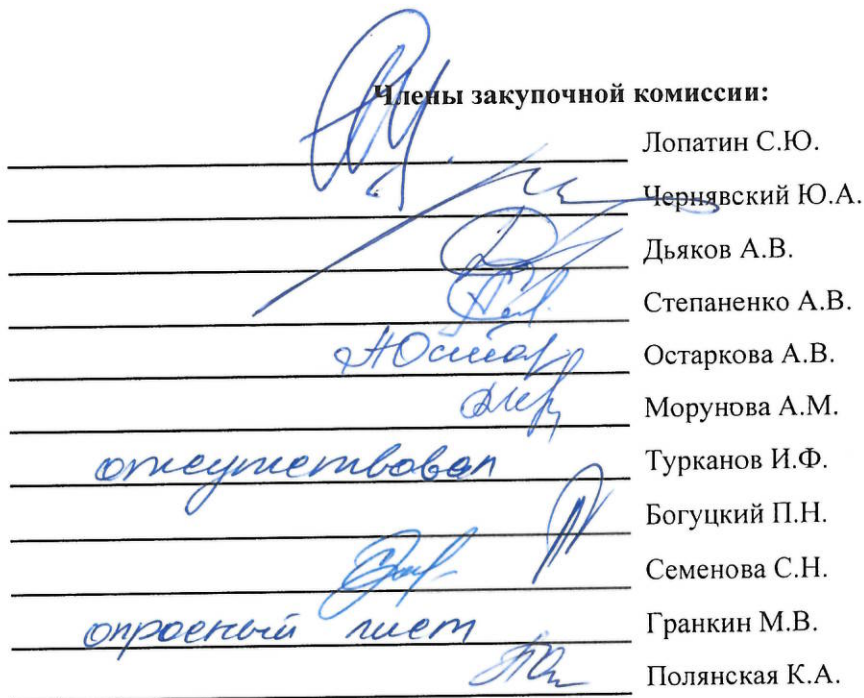 Члены закупочной комиссии:
Лопатин С.Ю.
Чернявский Ю.А.
Дьяков А.В.
Степаненко А.В.
Остаркова А.В.
Морунова А.М.
отсутствовал Турканов И.Ф.
Богуцкий П.Н.
Семенова С.Н.
опросный лист Гранкин М.В.
Полянская К.А.